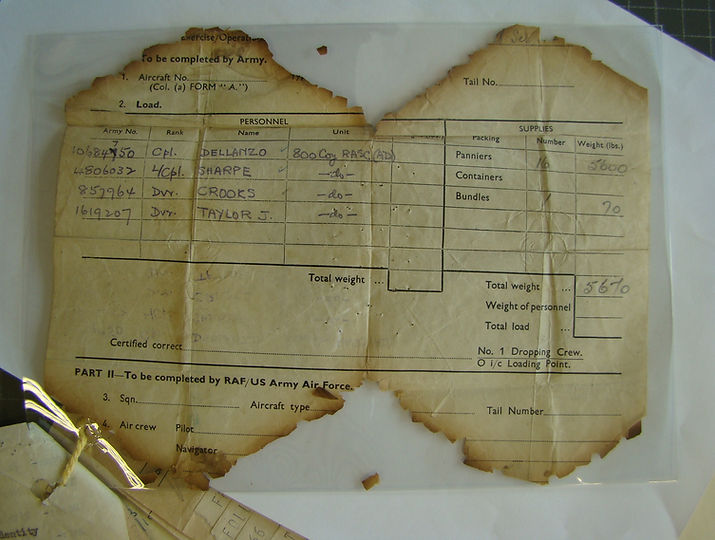 Exercise/Operati
To be completed by Army.
1. Aircraft No.
(Col. (a) FORM "A.")
Tail No.
2. Load.
PERSONNEL
SUPPLIES
Army No. Rank Name Unit Packing Number Weight (lbs.)
Cpl. DELLANZO 800 Coy RASC (AD) Panniers 16 5600
4806032 L/Cpl. SHARPE —do— Containers
857964 Dvr. CROOKS —do— Bundles 70
1619207 Dvr. TAYLOR J. —do—
Total weight ... Total weight ... 5670
Weight of personnel
Total load ...
Certified correct
No. 1 Dropping Crew.
O i/c Loading Point.
PART II—To be completed by RAF/US Army Air Force.
3. Sqn. Aircraft type Tail Number
4. Air crew Pilot
Navigator
dentity